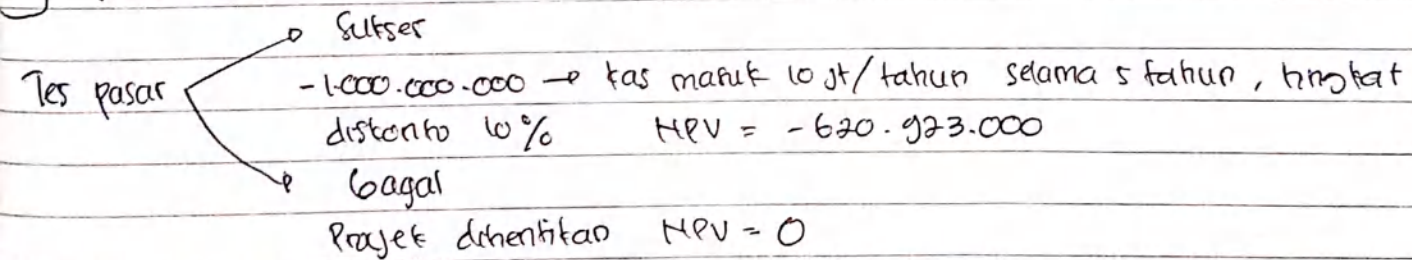 Sukses
Tes pasar -1.000.000.000 → kas masuk 10 jt/tahun selama 5 tahun, tingkat
diskonto 10% NPV = -620.923.000
Gagal
Projek dihentikan NPV = 0